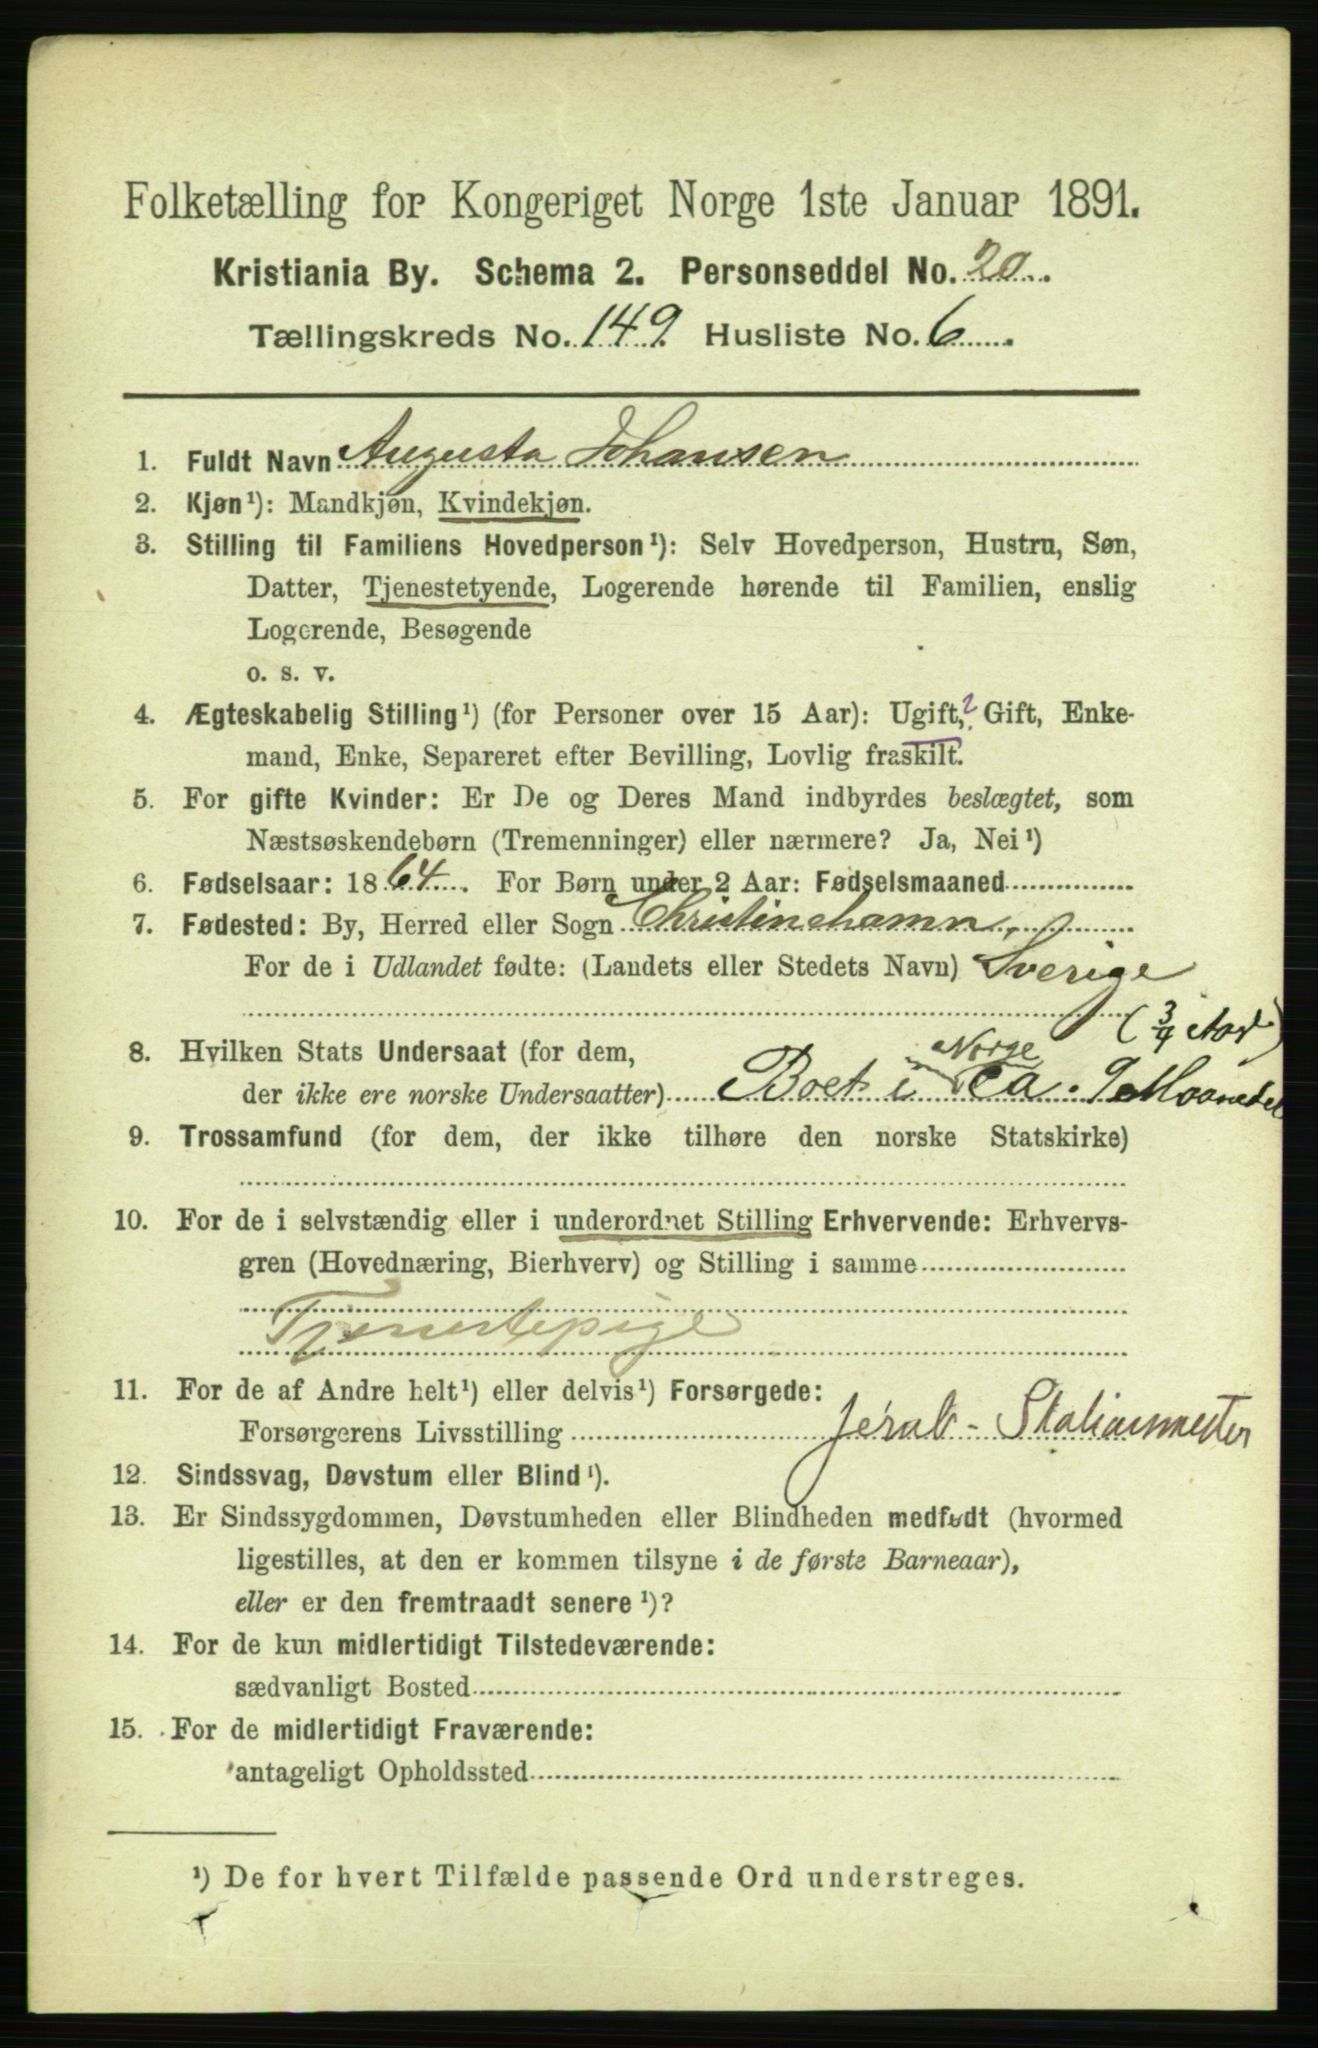 Folketælling for Kongeriget Norge 1ste Januar 1891.
Kristiania By. Schema 2. Personseddel No. 20
Tællingskreds No. 149 Husliste No. 6
1. Fuldt Navn Augusta Johansen
2. Kjøn¹): Mandkjøn, Kvindekjøn.
3. Stilling til Familiens Hovedperson¹): Selv Hovedperson, Hustru, Søn,
Datter, Tjenestetyende, Logerende hørende til Familien, enslig
Logerende, Besøgende
o. s. v.
4. Ægteskabelig Stilling¹) (for Personer over 15 Aar): Ugift,? Gift, Enke-
mand, Enke, Separeret efter Bevilling, Lovlig fraskilt.
5. For gifte Kvinder: Er De og Deres Mand indbyrdes beslægtet, som
Næstsøskendebørn (Tremenninger) eller nærmere? Ja, Nei¹)
6. Fødselsaar: 1864. For Børn under 2 Aar: Fødselsmaaned
7. Fødested: By, Herred eller Sogn Christinehamn,
For de i Udlandet fødte: (Landets eller Stedets Navn) Sverige
(3/4 Aar)
8. Hvilken Stats Undersaat (for dem,
Norge
der ikke ere norske Undersaatter) Boet i ca. 9 Maaneder
9. Trossamfund (for dem, der ikke tilhøre den norske Statskirke)
10. For de i selvstændig eller i underordnet Stilling Erhvervende: Erhvervs-
gren (Hovednæring, Bierhverv) og Stilling i samme
Tjenestepige
11. For de af Andre helt¹) eller delvis¹) Forsørgede:
Forsørgerens Livsstilling
12. Sindssvag, Døvstum eller Blind¹).
13. Er Sindssygdommen, Døvstumheden eller Blindheden medfødt (hvormed
ligestilles, at den er kommen tilsyne i de første Barneaar),
eller er den fremtraadt senere¹)?
14. For de kun midlertidigt Tilstedeværende:
sædvanligt Bosted
15. For de midlertidigt Fraværende:
antageligt Opholdssted
¹) De for hvert Tilfælde passende Ord understreges.